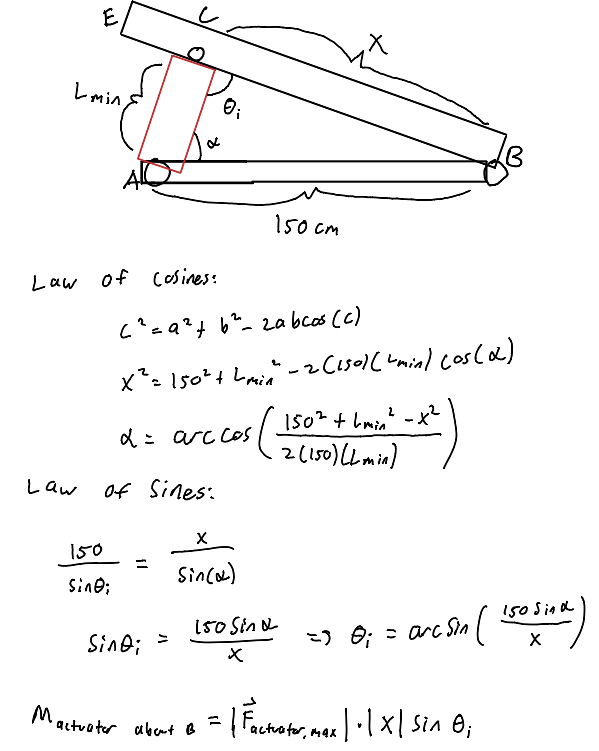 E
C
X
Lmin
θi
α
A
B
150 cm
Law of Cosines:
c² = a² + b² - 2abcos(c)
x² = 150² + Lmin² - 2(150)(Lmin) cos(α)
α = arccos((150² + Lmin² - x²) / (2(150)(Lmin)))
Law of Sines:
150 / sinθi = x / sin(α)
sinθi = 150 sinα / x => θi = arcsin(150 sinα / x)
M actuator about B = |F⃗actuator,max| · |x| sin θi